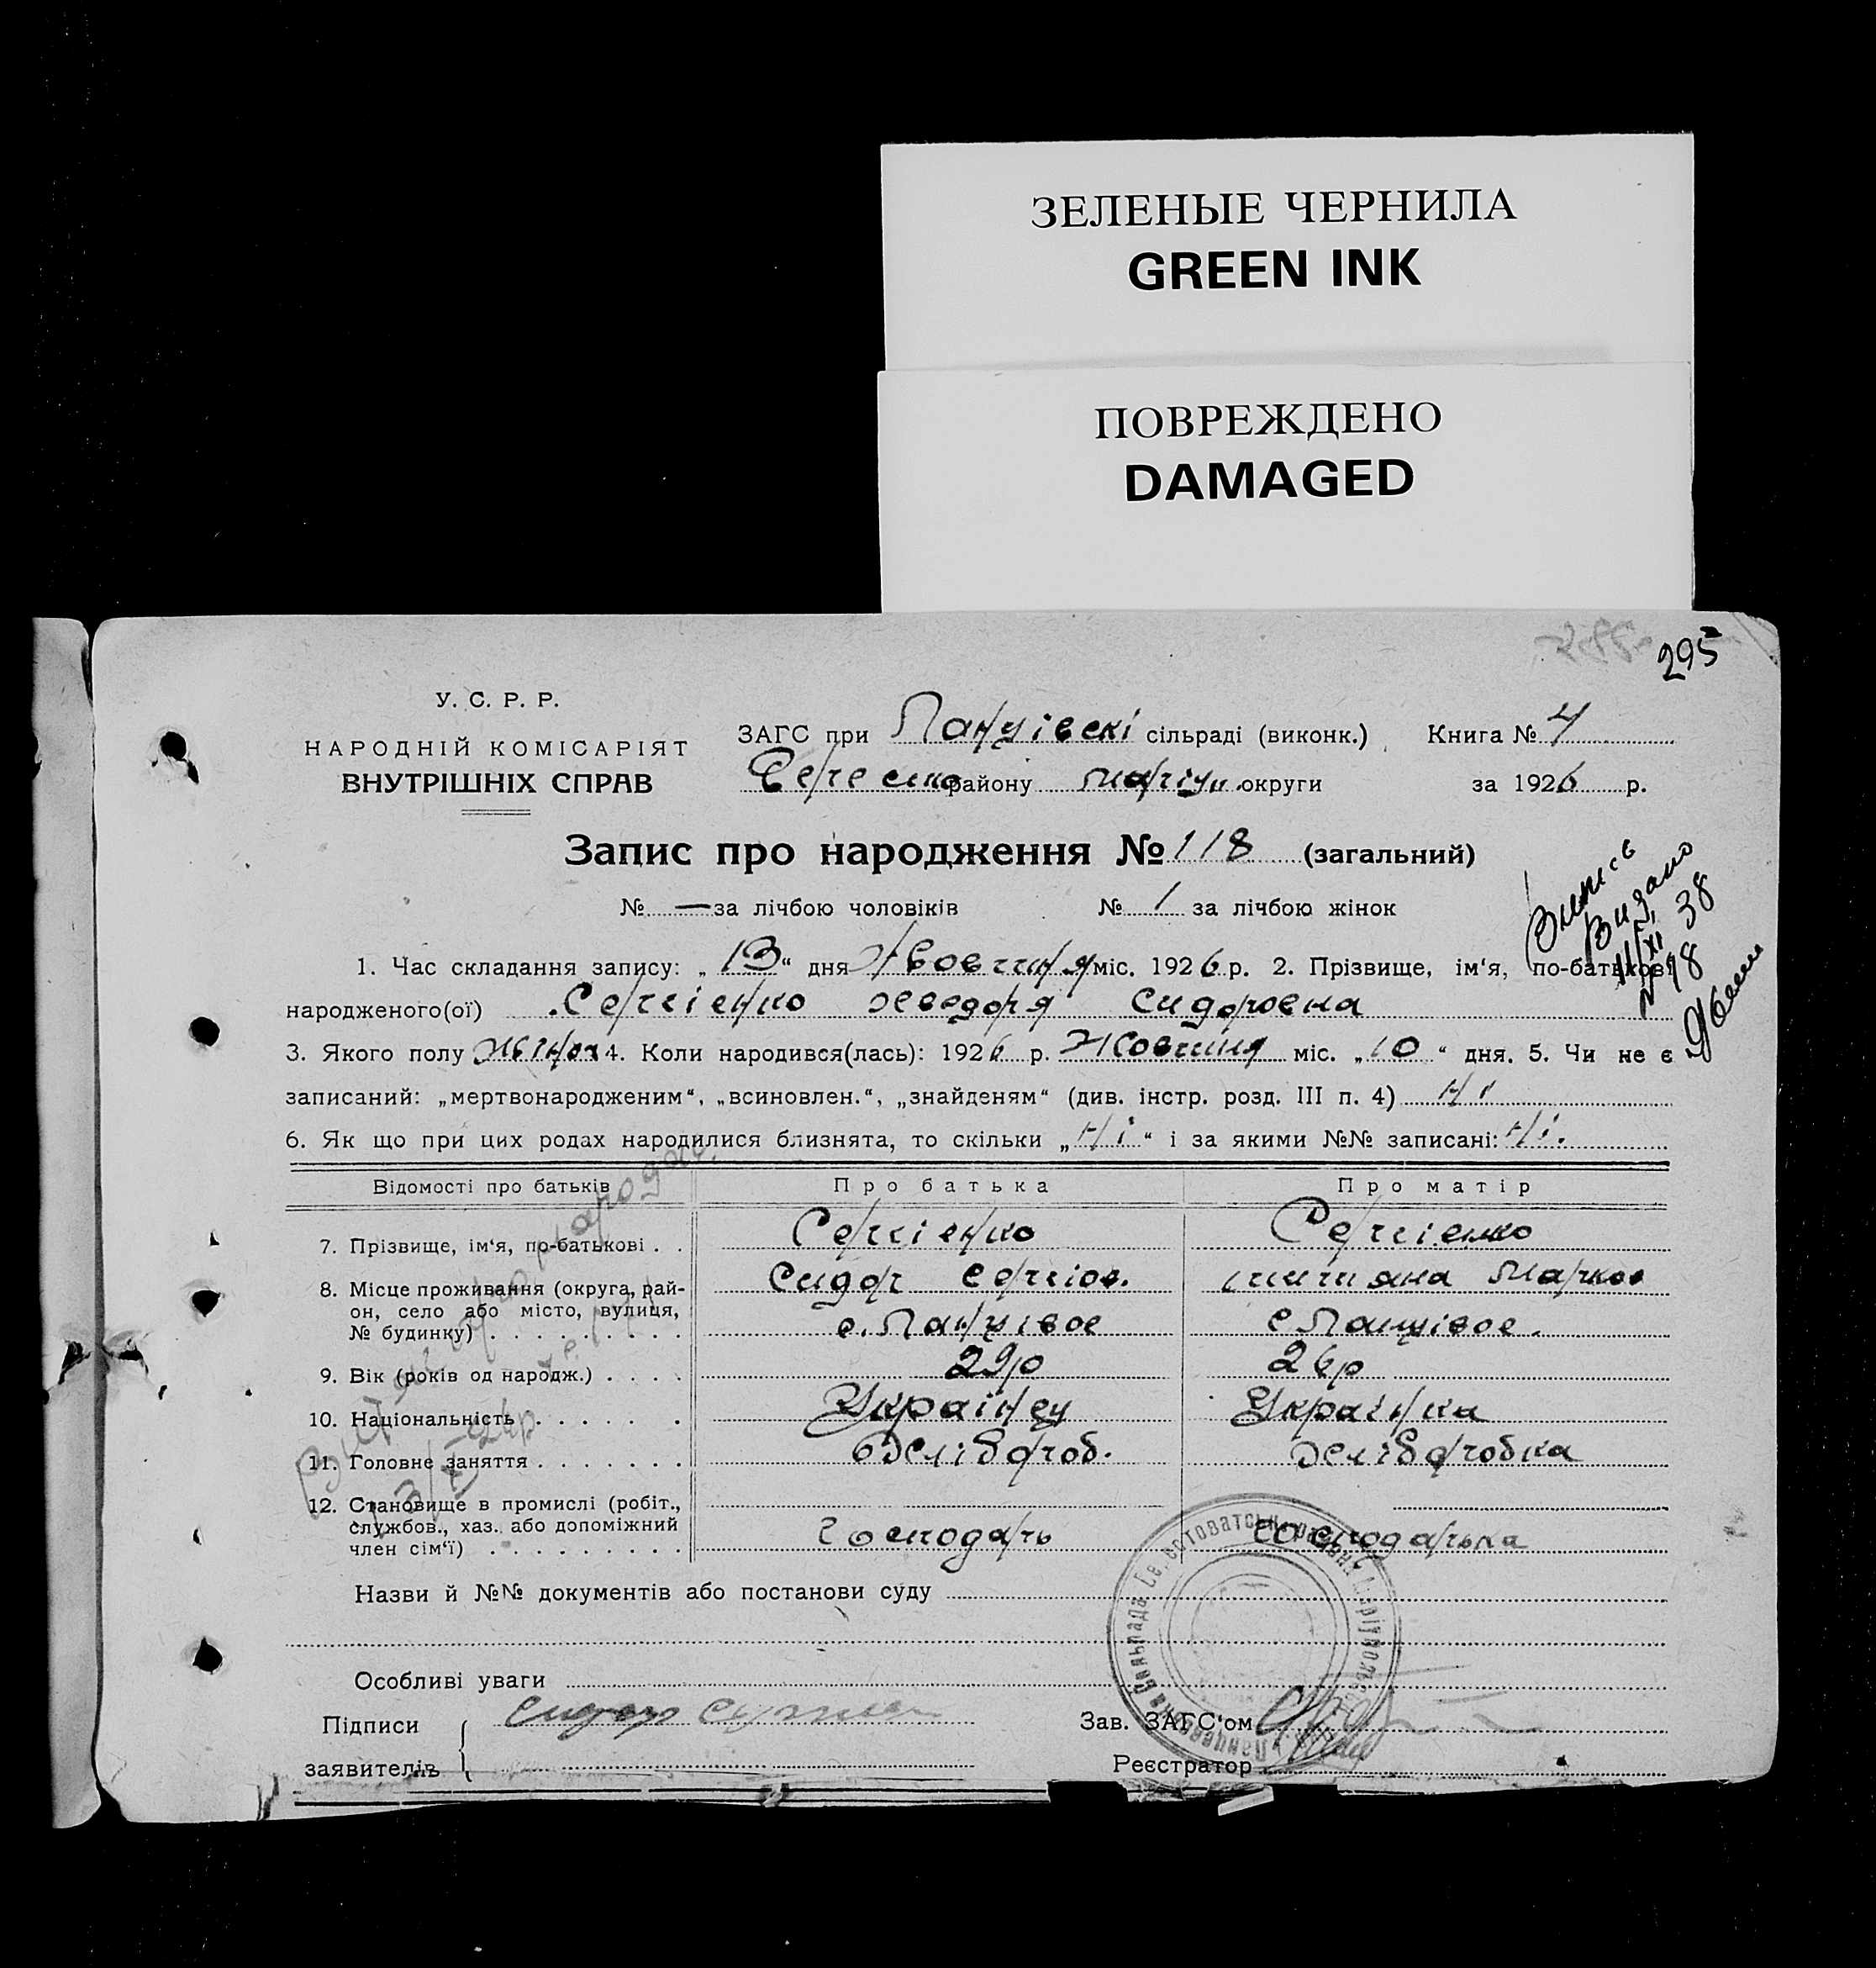 ЗЕЛЕНЫЕ ЧЕРНИЛА
GREEN INK
ПОВРЕЖДЕНО
DAMAGED
295
У. С. Р. Р.
НАРОДНІЙ КОМІСАРІЯТ
ВНУТРІШНІХ СПРАВ
ЗАГС при Панцівскі сільраді (виконк.) Книга № 4
району маріуп. округи за 1926 р.
Запис про народження № 118 (загальний)
№ — за лічбою чоловіків № 1 за лічбою жінок
Випись
Видано
11/XI 38
1. Час складання запису: „13“ дня Жовтня міс. 1926 р. 2. Прізвище, ім‘я, по-батькові
народженого(ої) Сергієнко Сидоровна
3. Якого полу 4. Коли народився(лась): 1926 р. Жовтня міс. „10“ дня. 5. Чи не є
записаний: „мертвонародженим“, „всиновлен.“, „знайденям“ (див. інстр. розд. III п. 4) Ні
6. Як що при цих родах народилися близнята, то скільки „Ні“ і за якими №№ записані: Ні.
Відомості про батьків Про батька Про матір
7. Прізвище, ім‘я, по-батькові . . Сергієнко Сергієнко
8. Місце проживання (округа, рай-
он, село або місто, вулиця,
№ будинку) . . . . . . . . .
Сидор Сергіов. Марков
с. Панцівое с Панцівое.
9. Вік (років од народж.) . . . . 29р 26р
10. Національність . . . . . . Українец Українка
11. Головне заняття . . . . . . . Хлібороб. Хліборобка
12. Становище в промислі (робіт.,
службов., хаз. або допоміжний
член сім‘ї) . . . . . . . . .
Господарь Господарька
Назви й №№ документів або постанови суду
Особливі уваги
Підписи
заявителів
Сидор
Зав. ЗАГС‘ом
Реєстратор